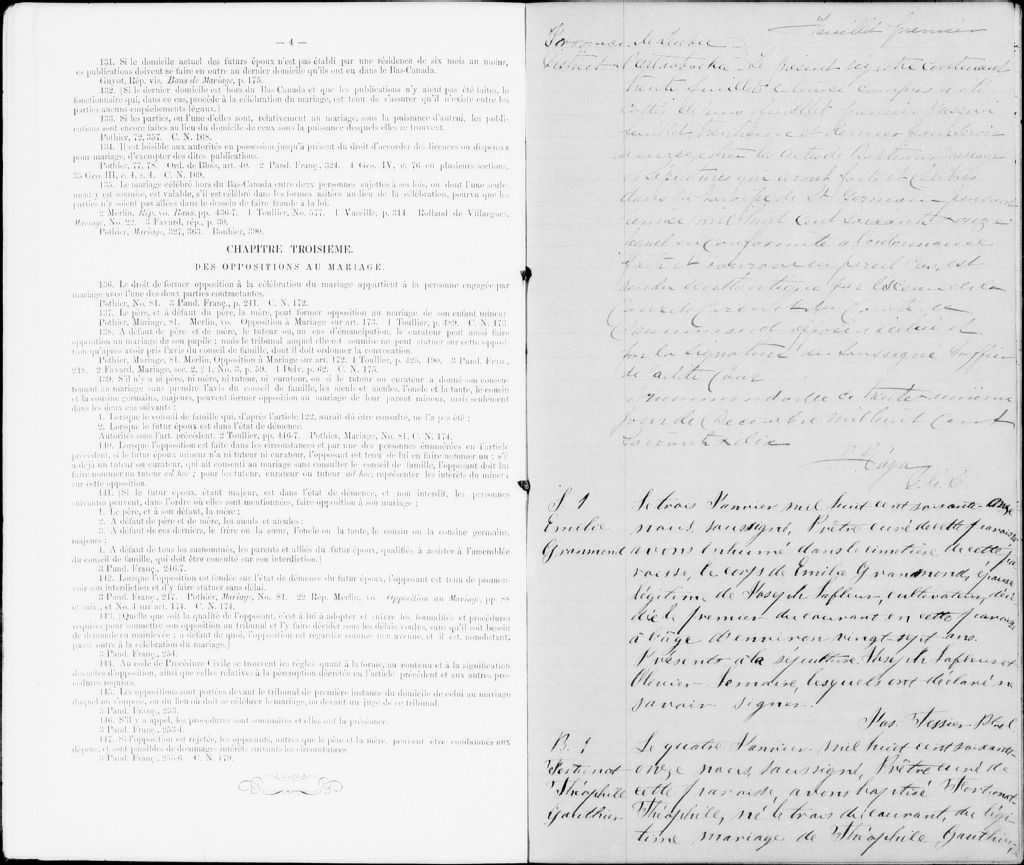 — 4 —
131. Si le domicile actuel des futurs époux n'est pas établi par une résidence de six mois au moins,
ces publications doivent se faire en outre au dernier domicile qu'ils ont eu dans le Bas-Canada.
Guyot, Rép. vis. Bans de Mariage, p. 175.
132. [Si le dernier domicile est hors du Bas-Canada et que les publications n'y aient pas été faites, le
fonctionnaire qui, dans ce cas, procède à la célébration du mariage, est tenu de s'assurer qu'il n'existe entre les
parties aucuns empêchements légaux.]
133. Si les parties, ou l'une d'elles sont, relativement au mariage, sous la puissance d'autrui, les publi-
cations sont encore faites au lieu du domicile de ceux sous la puissance desquels elles se trouvent.
Pothier, 72, 357. C. N. 168.
134. Il est loisible aux autorités en possession jusqu'à présent du droit d'accorder des licences ou dispenses
pour mariage, d'exempter des dites publications.
Pothier, 77, 78. Ord. de Blois, art. 40. 2 Pand. Franç., 324. 4 Geo. IV, c. 76 en plusieurs sections.
35 Geo. III, c. 4, s. 4. C. N. 169.
135. Le mariage célébré hors du Bas-Canada entre deux personnes sujettes à ses lois, ou dont l'une seule-
ment y est soumise, est valable, s'il est célébré dans les formes usitées au lieu de la célébration, pourvu que les
parties n'y soient pas allées dans le dessein de faire fraude à la loi.
2 Merlin, Rép. vo. Bans, pp. 436-7. 1 Toullier, No. 577. 1 Vazeille, p. 314. Rolland de Villargues,
Mariage, No. 22. 3 Favard, rép., p. 30.
Pothier, Mariage, 327, 363. Bouhier, 390.
CHAPITRE TROISIEME.
DES OPPOSITIONS AU MARIAGE.
136. Le droit de former opposition à la célébration du mariage appartient à la personne engagée par
mariage avec l'une des deux parties contractantes.
Pothier, No. 81. 3 Pand. Franç., p. 241. C. N. 172.
137. Le père, et à défaut du père, la mère, peut former opposition au mariage de son enfant mineur.
Pothier, Mariage, 81. Merlin, vo. Opposition à Mariage sur art. 173. 1 Toullier, p. 489. C. N. 173.
138. A défaut de père et de mère, le tuteur ou, au cas d'émancipation, le curateur peut aussi faire
opposition au mariage de son pupille ; mais le tribunal auquel elle est soumise ne peut statuer sur cette opposi-
tion qu'après avoir pris l'avis du conseil de famille, dont il doit ordonner la convocation.
Pothier, Mariage, 81. Merlin, Opposition à Mariage sur art. 172. 1 Toullier, p. 425, 490. 3 Pand. Fran.,
248. 2 Favard, Mariage, sec. 2, § 1. No. 3, p. 59. 1 Delv. p. 62. C. N. 175.
139. S'il n'y a ni père, ni mère, ni tuteur, ni curateur, ou si le tuteur ou curateur a donné son consen-
tement au mariage sans prendre l'avis du conseil de famille, les aïeuls et aïeules, l'oncle et la tante, le cousin
et la cousine germains, majeurs, peuvent former opposition au mariage de leur parent mineur, mais seulement
dans les deux cas suivants :
1. Lorsque le conseil de famille qui, d'après l'article 122, aurait dû être consulté, ne l'a pas été ;
2. Lorsque le futur époux est dans l'état de démence.
Autorités sous l'art. précédent. 2 Toullier, pp. 446-7. Pothier, Mariage, No. 81, C. N. 174.
140. Lorsque l'opposition est faite dans les circonstances et par une des personnes énumérées en l'article
précédent, si le futur époux mineur n'a ni tuteur ni curateur, l'opposant est tenu de lui en faire nommer un ; s'il
a déjà un tuteur ou curateur, qui ait consenti au mariage sans consulter le conseil de famille, l'opposant doit lui
faire nommer un tuteur ad hoc ; pour les tuteur, curateur ou tuteur ad hoc, représenter les intérêts du mineur
sur cette opposition.
141. [Si le futur époux, étant majeur, est dans l'état de démence, et non interdit, les personnes
suivantes peuvent, dans l'ordre où elles sont mentionnées, faire opposition à son mariage :
1. Le père, et à son défaut, la mère ;
2. A défaut de père et de mère, les aïeuls et aïeules ;
3. A défaut de ces derniers, le frère ou la sœur, l'oncle ou la tante, le cousin ou la cousine germains,
majeurs ;
4. A défaut de tous les susnommés, les parents et alliés du futur époux, qualifiés à assister à l'assemblée
du conseil de famille, qui doit être consulté sur son interdiction.]
3 Pand. Franç., 246.7.
142. Lorsque l'opposition est fondée sur l'état de démence du futur époux, l'opposant est tenu de promou-
voir son interdiction et d'y faire statuer sans délai.
3 Pand. Franç., 247. Pothier, Mariage, No. 81. 22 Rép. Merlin, vo. Opposition au Mariage, pp. 88
et suiv., et No. 4 sur art. 174. C. N. 174.
143. [Quelle que soit la qualité de l'opposant, c'est à lui à adopter et suivre les formalités et procédures
requises pour soumettre son opposition au tribunal et l'y faire décider sous les délais voulus, sans qu'il soit besoin
de demande en mainlevée ; à défaut de quoi, l'opposition est regardée comme non avenue, et il est, nonobstant,
passé outre à la célébration du mariage.]
3 Pand. Franç., 254.
144. Au code de Procédure Civile se trouvent les règles quant à la forme, au contenu et à la signification
des actes d'opposition, ainsi que celles relatives à la péremption décrétée en l'article précédent et aux autres pro-
cédures requises.
145. Les oppositions sont portées devant le tribunal de première instance du domicile de celui au mariage
duquel on s'oppose, ou du lieu où doit se célébrer le mariage, ou devant un juge de ce tribunal.
3 Pand. Franç., 253.
146. S'il y a appel, les procédures sont sommaires et elles ont la préséance.
3 Pand. Franç., 253-4.
147. Si l'opposition est rejetée, les opposants, autres que le père et la mère, peuvent être condamnés aux
dépens, et sont passibles de dommages-intérêts suivant les circonstances.
3 Pand. Franç., 255-6. C. N. 179.
Feuillet premier
Province de Québec
District d'Arthabaska Le présent registre contenant
trente feuillets celui-ci compris a été
cotté depuis feuillet premier jusqu'au
feuillet trentième et dernier
d'enregistrer les actes de Baptême mariage
et sépultures qui seront faits et célébrés
dans la paroisse de St Germain pendant
l'année mil huit cent soixante et onze
lequel en conformité à l'ordonnance
faite et pourvue en pareil cas, est
rendu authentique par le sceau de la
Cour de Circuit du Comté de
Drummond apposé à celui et
par la signature du soussigné Greffier
de la dite Cour
Drummondville ce trente-unième
jour de Décembre mil huit cent
soixante & dix
S. 1
Emilie
Granmond
Le trois Janvier mil huit cent soixante-onze
nous, soussigné, Prêtre curé de cette paroisse
avons inhumé dans le cimetière de cette pa-
roisse, le corps de Emilie Granmond, épouse
légitime de Joseph Lafleur, cultivateur, décé-
dée le premier du courant en cette paroisse
à l'âge d'environ vingt sept ans.
Présents à la sépulture Joseph Lafleur et
Olivier Lemaire, lesquels ont déclaré ne
savoir signer.
Jos. Tessier Ptre
B. 1
Fortunat-
Théophile
Gauthier
Le quatre Janvier mil huit cent soixante-
onze nous, soussigné, Prêtre curé de
cette paroisse, avons baptisé Fortunat-
Théophile, né le trois du courant, du légi-
time mariage de Théophile Gauthier,